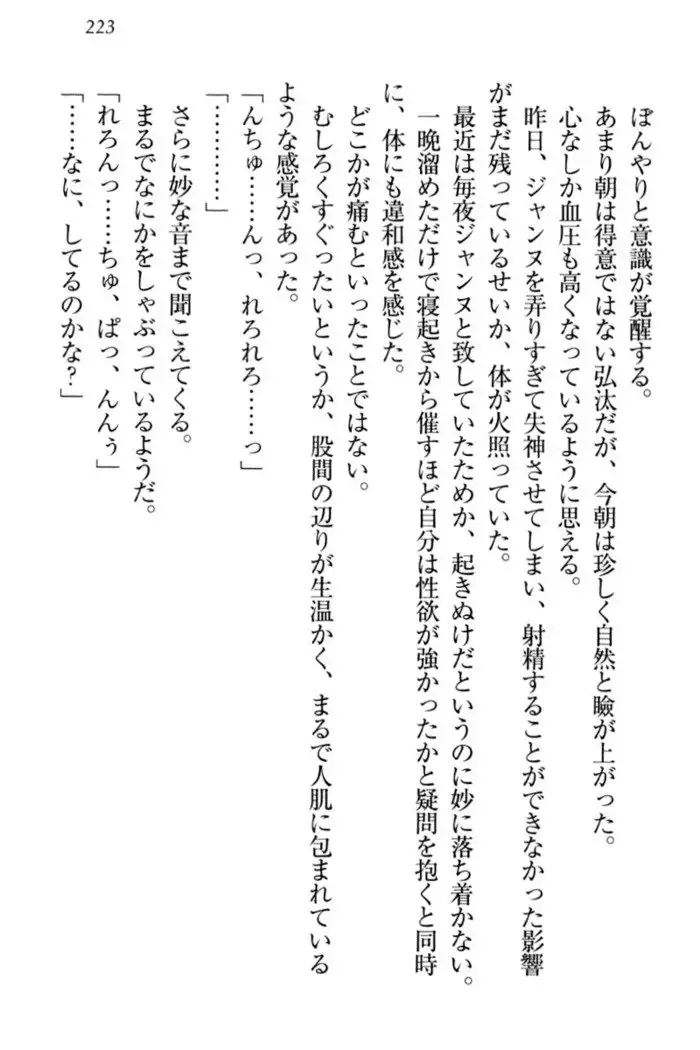 223
ぼんやりと意識が覚醒する。
あまり朝は得意ではない弘汰だが、今朝は珍しく自然と瞼が上がった。
心なしか血圧も高くなっているように思える。
昨日、ジャンヌを弄りすぎて失神させてしまい、射精することができなかった影響
がまだ残っているせいか、体が火照っていた。
最近は毎夜ジャンヌと致していたためか、起きぬけだというのに妙に落ち着かない。
一晩溜めただけで寝起きから催すほど自分は性欲が強かったかと疑問を抱くと同時
に、体にも違和感を感じた。
どこかが痛むといったことではない。
むしろくすぐったいというか、股間の辺りが生温かく、まるで人肌に包まれている
ような感覚があった。
「んちゅ……んっ、れろれろ……っ」
「…………」
さらに妙な音まで聞こえてくる。
まるでなにかをしゃぶっているようだ。
「れろんっ……ちゅ、ぱっ、んんぅ」
「……なに、してるのかな?」